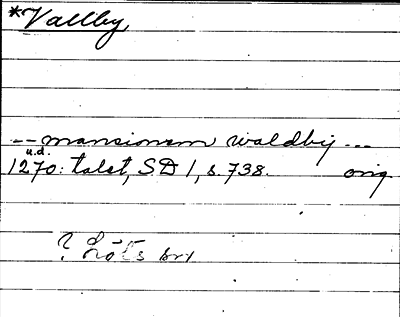 *Vallby
-- mansionem waldby ...
u.d.
1270: talet, SD 1, s. 738. orig.
? Löts